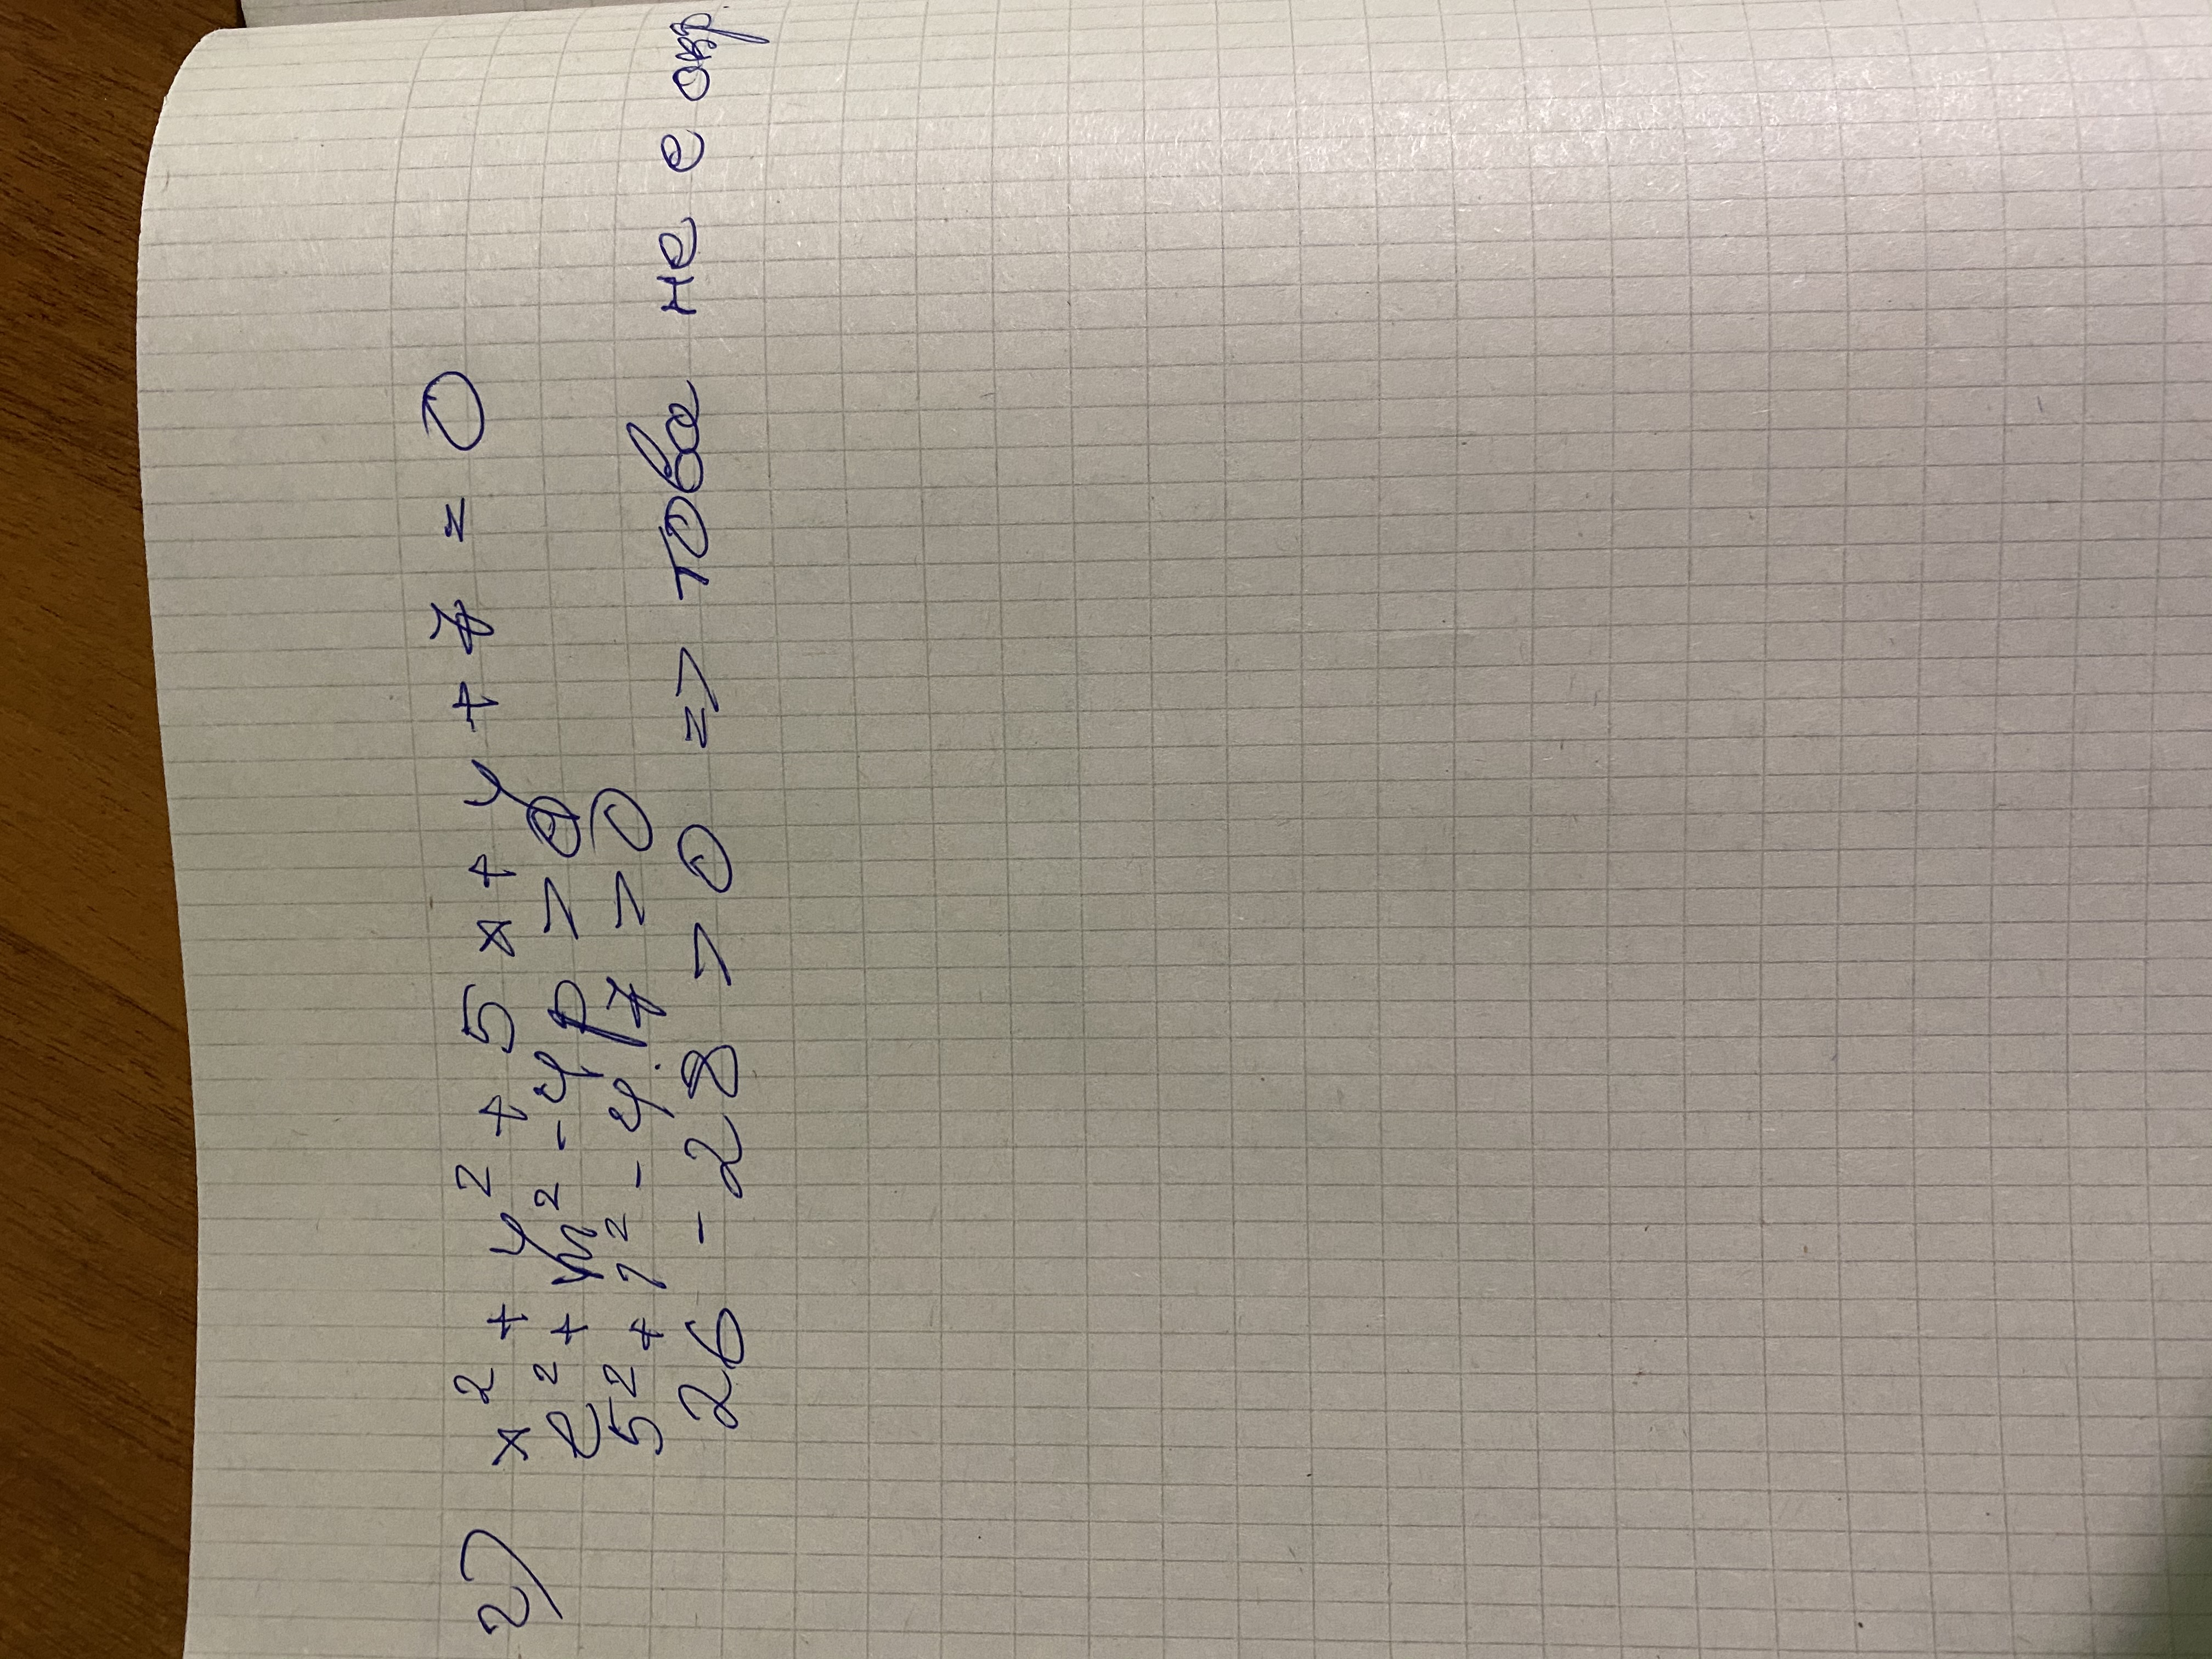 г) x² + y² + 5x + y + 7 = 0
l² + m² - 4p > 0
5² + 1² - 4.7 > 0
26 - 28 > 0 => това не е окр.